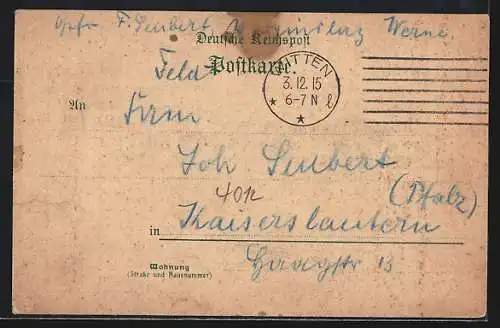 Gefr. F. Seubert Werne.
Deutsche Reichspost
Feld Postkarte.
WITTEN
3.12.15
6-7 N
* * l
An Firm
Joh Seubert
(Pfalz)
in Kaiserslautern
Haagstr 13
Wohnung
(Straße und Hausnummer)